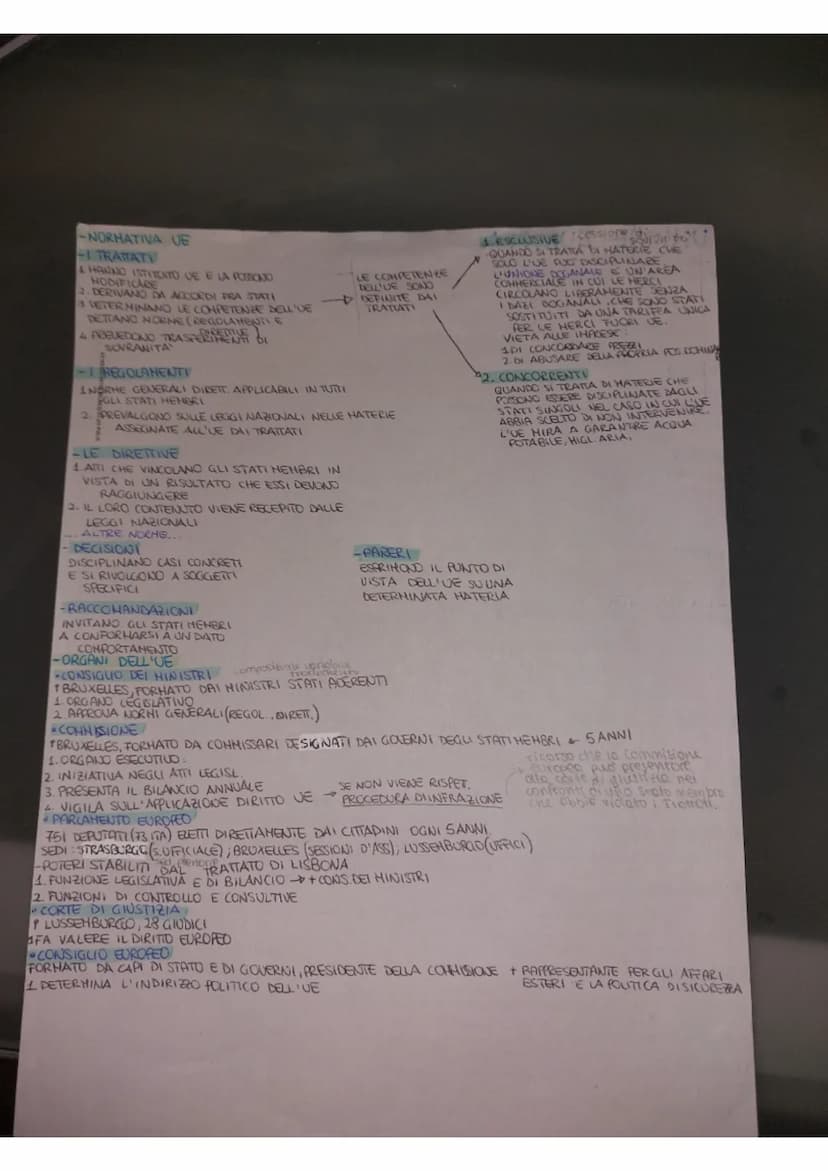 -NORMATIVA UE
-I TRATTATI
1. HANNO ISTITUITO UE E LA POSSONO
MODIFICARE
2. DERIVANO DA ACCORDI FRA STATI
3 DETERMINANO LE COMPETENZE DELL'UE
DETTANO NORME (REGOLAMENTI E
DIRETTIVE)
4 PREVEDONO TRASFERIMENTI DI
SOVRANITA'
LE COMPETENZE
DELL'UE SONO
DEFINITE DAI
TRATTATI
1. ESCLUSIVE (cessione di
sovranità)
QUANDO SI TRATTA DI MATERIE CHE
SOLO L'UE PUO' DISCIPLINARE
L'UNIONE DOGANALE E' UN'AREA
COMMERCIALE IN CUI LE MERCI
CIRCOLANO LIBERAMENTE SENZA
I DAZI DOGANALI, CHE SONO STATI
SOSTITUITI DA UNA TARIFFA UNICA
PER LE MERCI FUORI UE.
VIETA ALLE IMPRESE:
1. DI CONCORDARE PREZZI
2. DI ABUSARE DELLA PROPRIA POS. DOMINAN
2. CONCORRENTI
QUANDO SI TRATTA DI MATERIE CHE
POSSONO ESSERE DISCIPLINATE DAGLI
STATI SINGOLI NEL CASO IN CUI L'UE
ABBIA SCELTO DI NON INTERVENIRE.
L'UE MIRA A GARANTIRE ACQUA
POTABILE, MIGL. ARIA.
-I REGOLAMENTI
1 NORME GENERALI DIRETT. APPLICABILI IN TUTTI
GLI STATI MEMBRI
2. PREVALGONO SULLE LEGGI NAZIONALI NELLE MATERIE
ASSEGNATE ALL'UE DAI TRATTATI
-LE DIRETTIVE
1. ATTI CHE VINCOLANO GLI STATI MEMBRI IN
VISTA DI UN RISULTATO CHE ESSI DEVONO
RAGGIUNGERE
2. IL LORO CONTENUTO VIENE RECEPITO DALLE
LEGGI NAZIONALI
... ALTRE NORME...
- DECISIONI
DISCIPLINANO CASI CONCRETI
E SI RIVOLGONO A SOGGETTI
SPECIFICI
-PARERI
ESPRIMONO IL PUNTO DI
VISTA DELL'UE SU UNA
DETERMINATA MATERIA
-RACCOMANDAZIONI
INVITANO GLI STATI MEMBRI
A CONFORMARSI A UN DATO
COMPORTAMENTO
-ORGANI DELL'UE
•CONSIGLIO DEI MINISTRI composizione variabile
BRUXELLES, FORMATO DAI MINISTRI STATI ADERENTI
1 ORGANO LEGISLATIVO
2. APPROVA NORME GENERALI (REGOL., DIRETT.)
•COMMISSIONE
BRUXELLES, FORMATO DA COMMISSARI DESIGNATI DAI GOVERNI DEGLI STATI MEMBRI 5 ANNI
1. ORGANO ESECUTIVO:
2. INIZIATIVA NEGLI ATTI LEGISL.
3. PRESENTA IL BILANCIO ANNUALE
4. VIGILA SULL'APPLICAZIONE DIRITTO UE → SE NON VIENE RISPET.
PROCEDURA DI INFRAZIONE
ricorso che la Commissione
Europea può presentare
alla corte di giustizia nei
confronti di uno Stato membro
che abbia violato i Trattati.
•PARLAMENTO EUROPEO
751 DEPUTATI (73 ITA) ELETTI DIRETTAMENTE DAI CITTADINI OGNI 5 ANNI
SEDI: STRASBURGO (S. UFFICIALE); BRUXELLES (SESSIONI D'ASS); LUSSEMBURGO (UFFICI)
-POTERI STABILITI DAL TRATTATO DI LISBONA
1. FUNZIONE LEGISLATIVA E DI BILANCIO → + CONS. DEI MINISTRI
2. FUNZIONI DI CONTROLLO E CONSULTIVE
•CORTE DI GIUSTIZIA
LUSSEMBURGO, 28 GIUDICI
1 FA VALERE IL DIRITTO EUROPEO
•CONSIGLIO EUROPEO
FORMATO DA CAPI DI STATO E DI GOVERNI, PRESIDENTE DELLA COMMISSIONE + RAPPRESENTANTE PER GLI AFFARI
ESTERI E LA POLITICA DI SICUREZZA
1 DETERMINA L'INDIRIZZO POLITICO DELL'UE